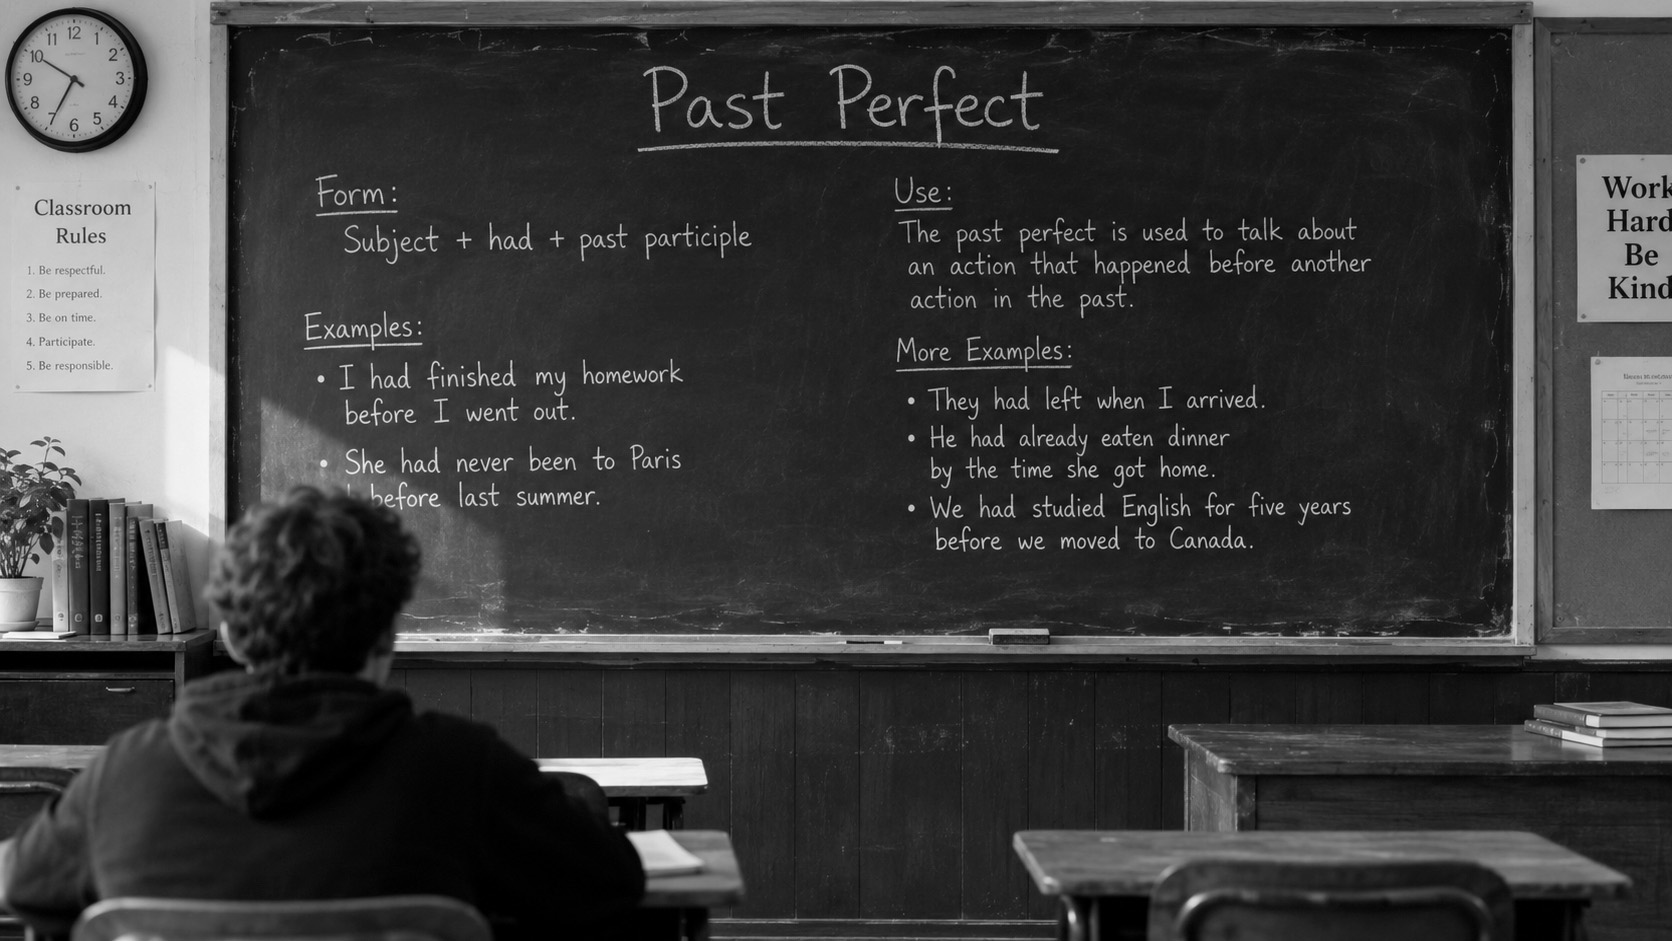 12
11
1
10
2
9
3
8
4
7
5
6
Classroom
Rules
1. Be respectful.
2. Be prepared.
3. Be on time.
4. Participate.
5. Be responsible.
Past Perfect
Form:
Subject + had + past participle
Examples:
• I had finished my homework
before I went out.
• She had never been to Paris
before last summer.
Use:
The past perfect is used to talk about
an action that happened before another
action in the past.
More Examples:
• They had left when I arrived.
• He had already eaten dinner
by the time she got home.
• We had studied English for five years
before we moved to Canada.
Work
Hard
Be
Kind